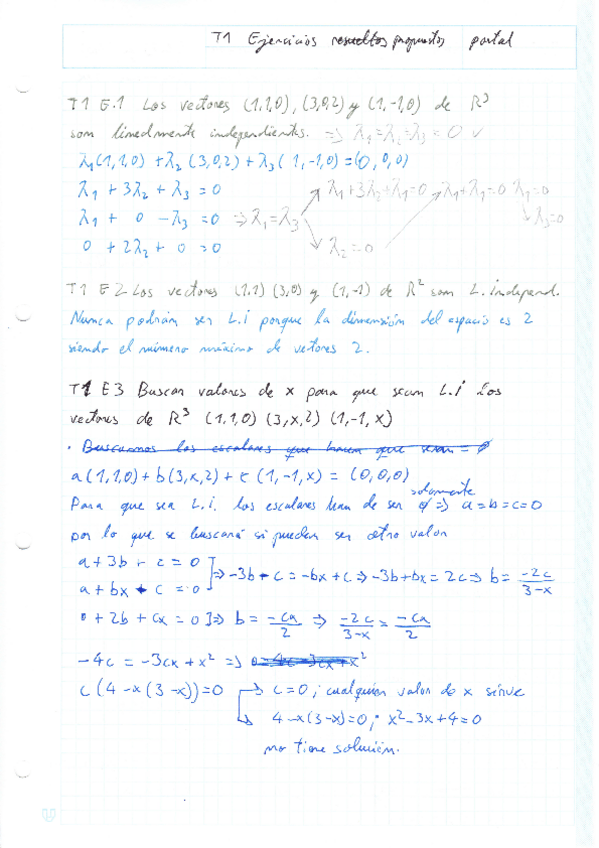 T1 Ejercicios resueltos propuestos portal
T1 E.1 Los vectores (1,1,0), (3,0,2) y (1,-1,0) de R³
son linealmente independientes. => λ₁=λ₂=λ₃=0 ✓
λ₁(1,1,0) + λ₂(3,0,2) + λ₃(1,-1,0) = (0,0,0)
λ₁ + 3λ₂ + λ₃ = 0 λ₁+3λ₂+λ₁=0 λ₁+λ₁=0 λ₁=0
λ₁ + 0 - λ₃ = 0 => λ₁=λ₃ λ₃=0
0 + 2λ₂ + 0 = 0 λ₂=0
T1 E2 Los vectores (1,1) (3,0) y (1,-1) de R² son L.independ.
Nunca podrán ser L.i porque la dimensión del espacio es 2
siendo el número máximo de vectores 2.
T1 E3 Buscar valores de x para que sean L.i los
vectores de R³ (1,1,0) (3,x,2) (1,-1,x)
· Buscamos los escalares que hacen que sean = 0
a(1,1,0)+b(3,x,2)+c(1,-1,x) = (0,0,0)
solamente
Para que sea L.i. los escalares han de ser 0 => a=b=c=0
por lo que se buscará si pueden ser otro valor
a+3b+c=0
=> -3b-c=-bx+c => -3b+bx=2c => b= -2c/3-x
a+bx-c=0
0+2b+cx=0 => b= -cx/2 => -2c/3-x = -cx/2
-4c = -3cx+x² =>
c(4-x(3-x))=0 -> c=0; cualquier valor de x sirve
4-x(3-x)=0; x²-3x+4=0
no tiene solución.